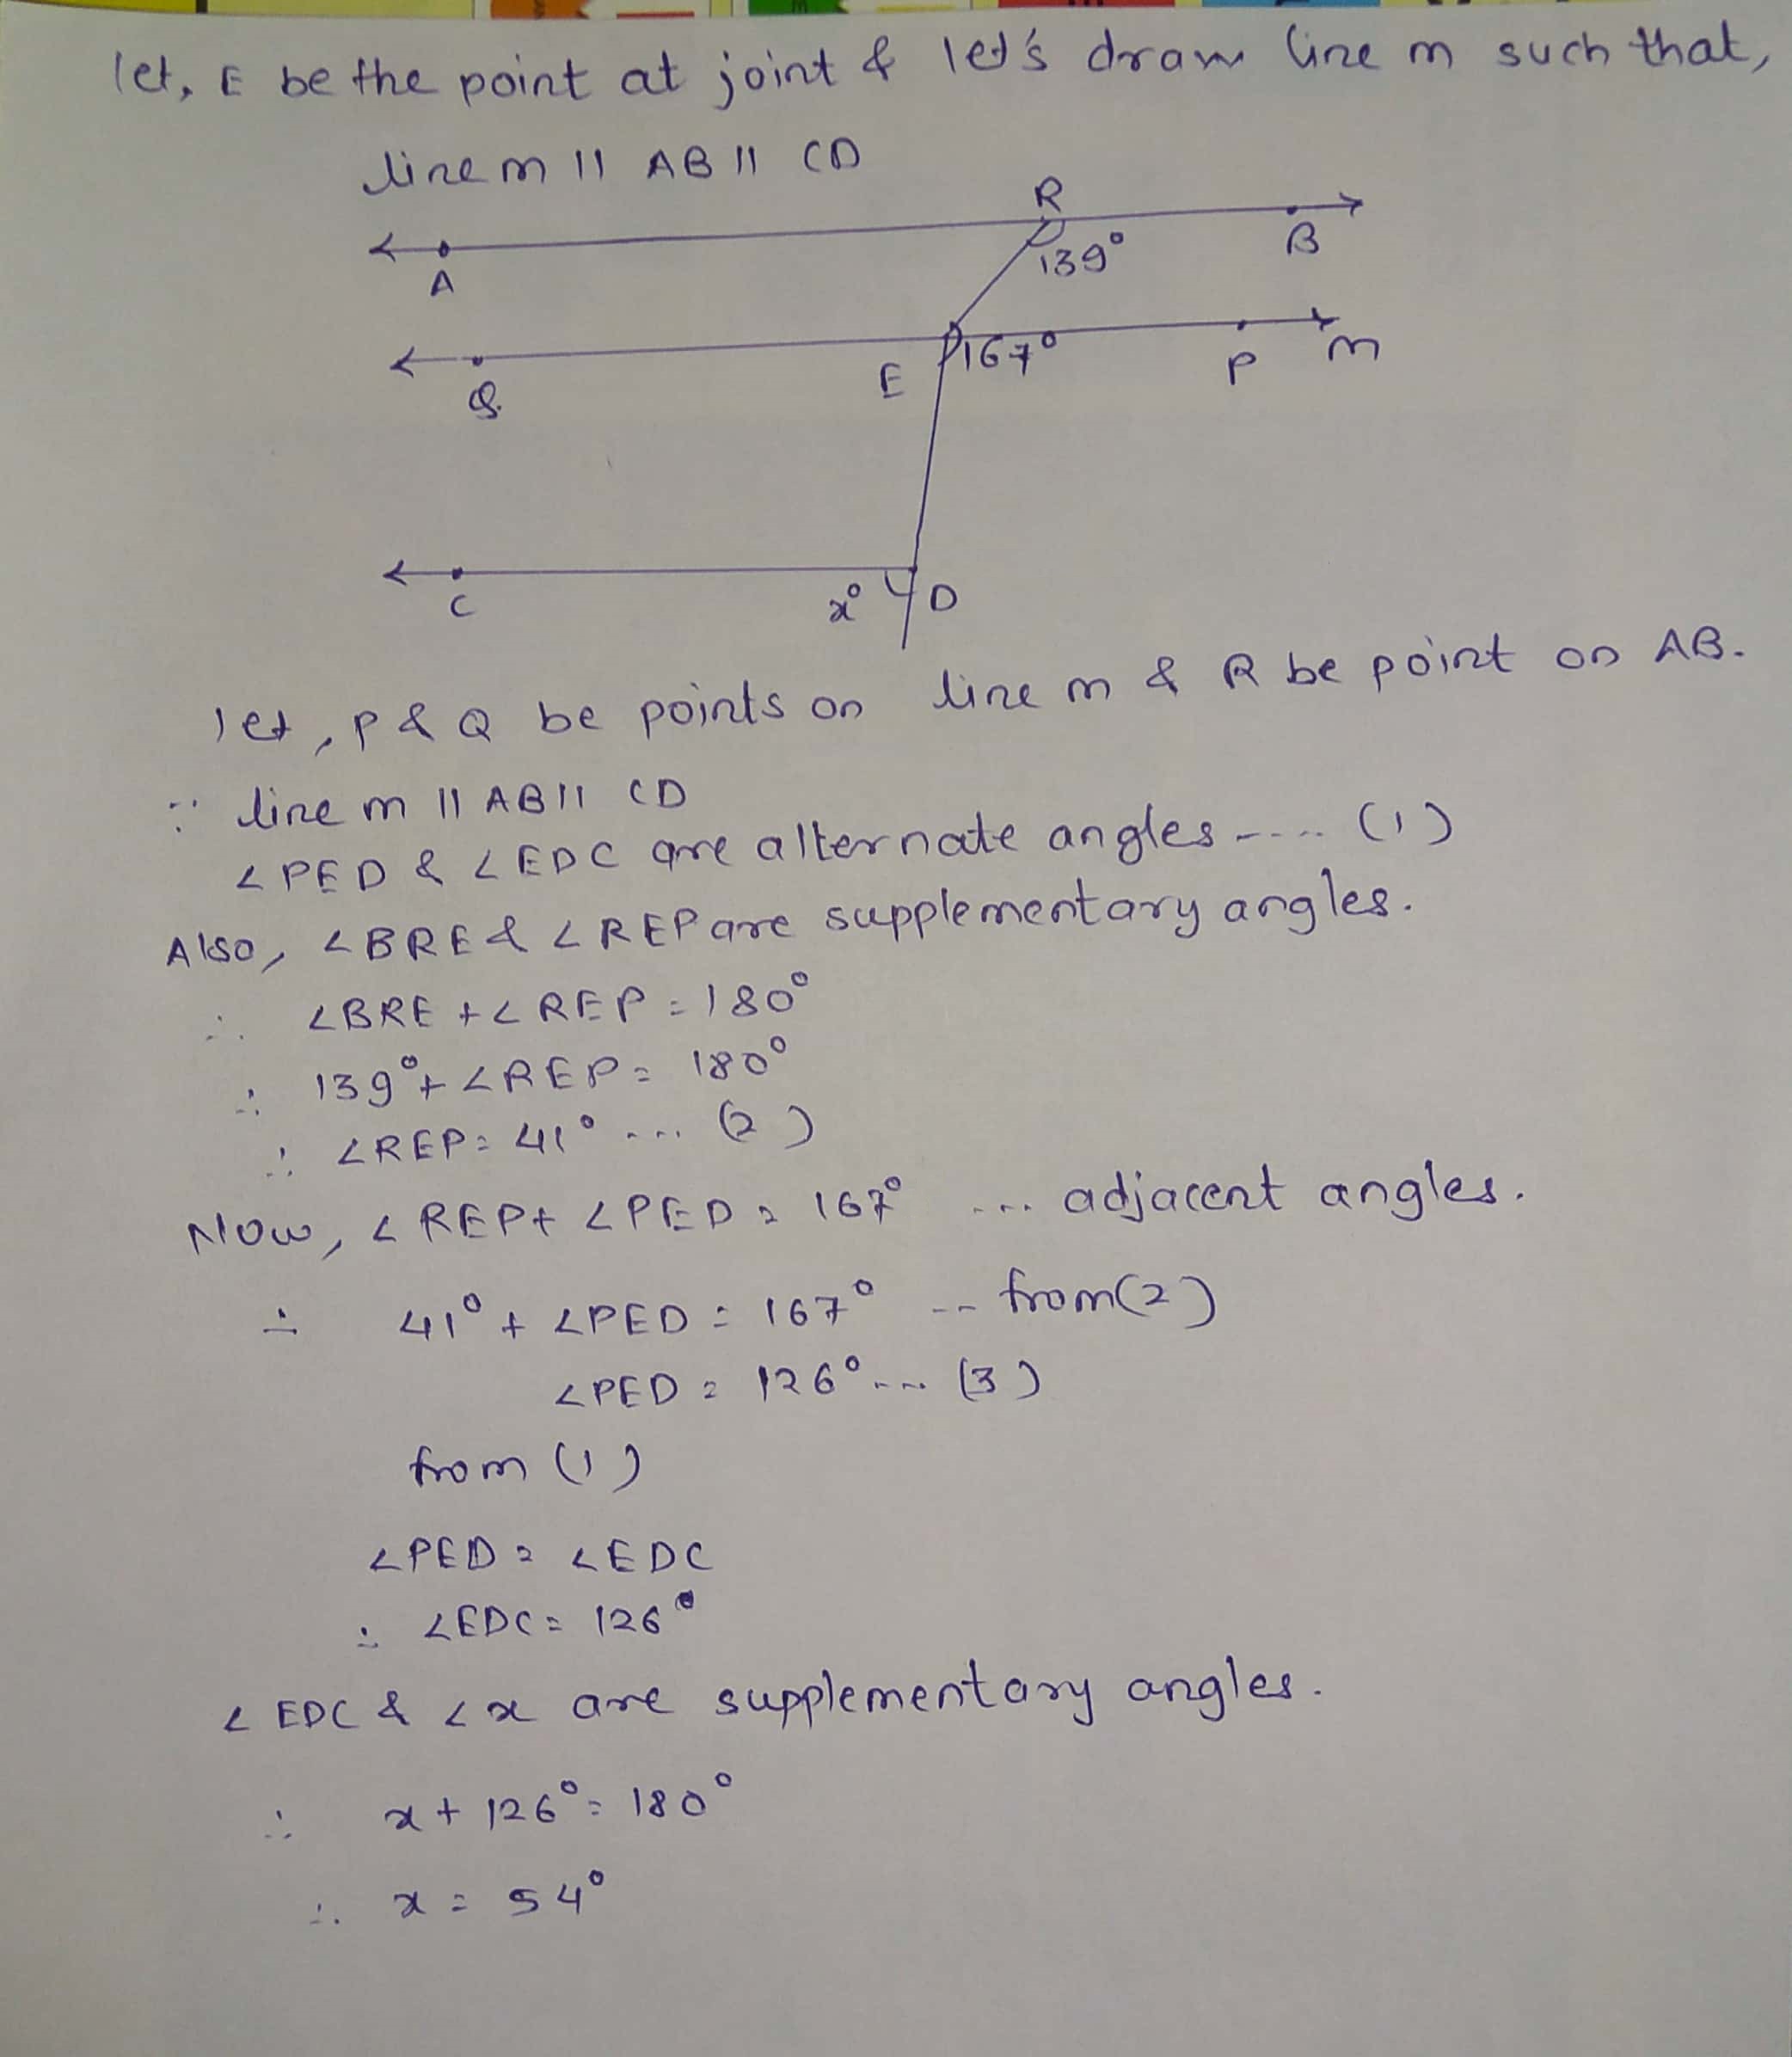 let, E be the point at joint & let's draw line m such that,
line m || AB || CD
R
A
139°
B
Q
E
167°
P
m
C
x°
D
let, P & Q be points on line m & R be point on AB.
∵ line m || AB || CD
∠PED & ∠EDC are alternate angles ---- (1)
Also, ∠BRE & ∠REP are supplementary angles.
∴ ∠BRE + ∠REP = 180°
∴ 139° + ∠REP = 180°
∴ ∠REP = 41° ... (2)
Now, ∠REP + ∠PED = 167° ... adjacent angles.
∴ 41° + ∠PED = 167° -- from (2)
∠PED = 126° ... (3)
from (1)
∠PED = ∠EDC
∴ ∠EDC = 126°
∠EDC & ∠x are supplementary angles.
∴ x + 126° = 180°
∴ x = 54°